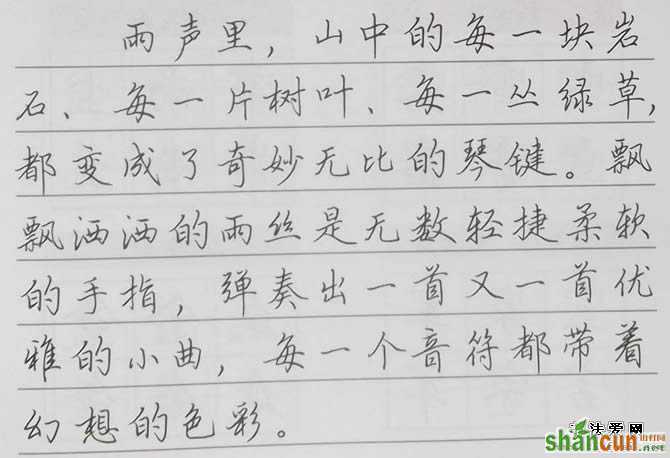 雨声里，山中的每一块岩
石、每一片树叶、每一丛绿草，
都变成了奇妙无比的琴键。飘
飘洒洒的雨丝是无数轻捷柔软
的手指，弹奏出一首又一首优
雅的小曲，每一个音符都带着
幻想的色彩。
法爱网
shancun
.net